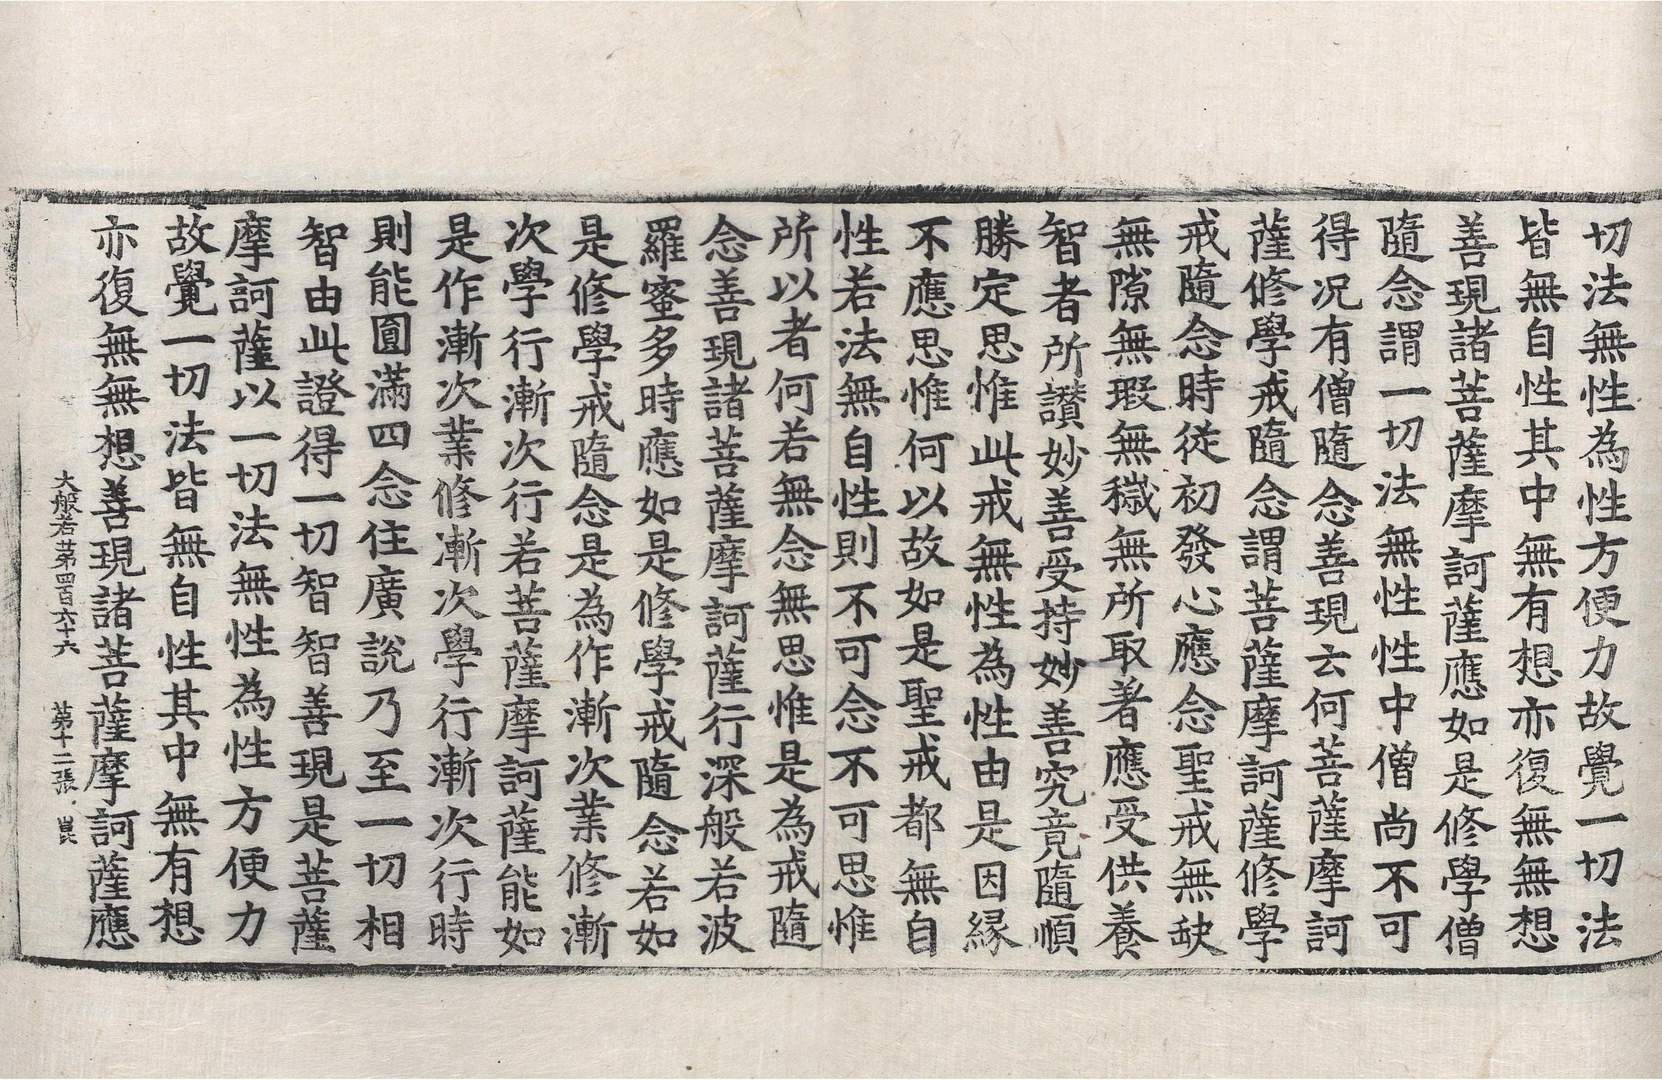 切法無性為性方便力故覺一切法
皆無自性其中無有想亦復無無想
善現諸菩薩摩訶薩應如是修學僧
隨念謂一切法無性性中僧尚不可
得况有僧隨念善現云何菩薩摩訶
薩修學戒隨念謂菩薩摩訶薩修學
戒隨念時從初發心應念聖戒無缺
無隙無瑕無穢無所取著應受供養
智者所讃妙善受持妙善究竟隨順
勝定思惟此戒無性為性由是因緣
不應思惟何以故如是聖戒都無自
性若法無自性則不可念不可思惟
所以者何若無念無思惟是為戒隨
念善現諸菩薩摩訶薩行深般若波
羅蜜多時應如是修學戒隨念若如
是修學戒隨念是為作漸次業修漸
次學行漸次行若菩薩摩訶薩能如
是作漸次業修漸次學行漸次行時
則能圓滿四念住廣說乃至一切相
智由此證得一切智智善現是菩薩
摩訶薩以一切法無性為性方便力
故覺一切法皆無自性其中無有想
亦復無無想善現諸菩薩摩訶薩應
大般若第四百六十六 第十二張 崑